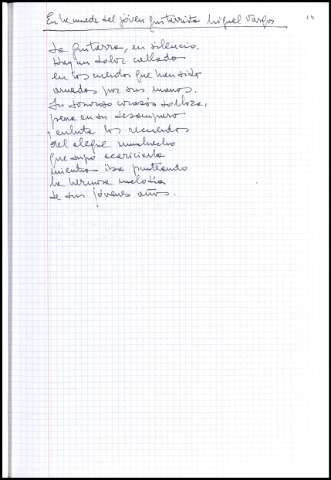 En la muerte del jóven guitarrista Miguel Vargas
La guitarra, en silencio.
Hay un dolor callado
en los que han sido
amadas por sus manos.
Su sonoro corazón solloza,
pena en su desamparo
y enluta los recuerdos
del alegre muchacho
que supo acariciarla
mientras iba punteando
la hermosa melodía
de sus jóvenes años.